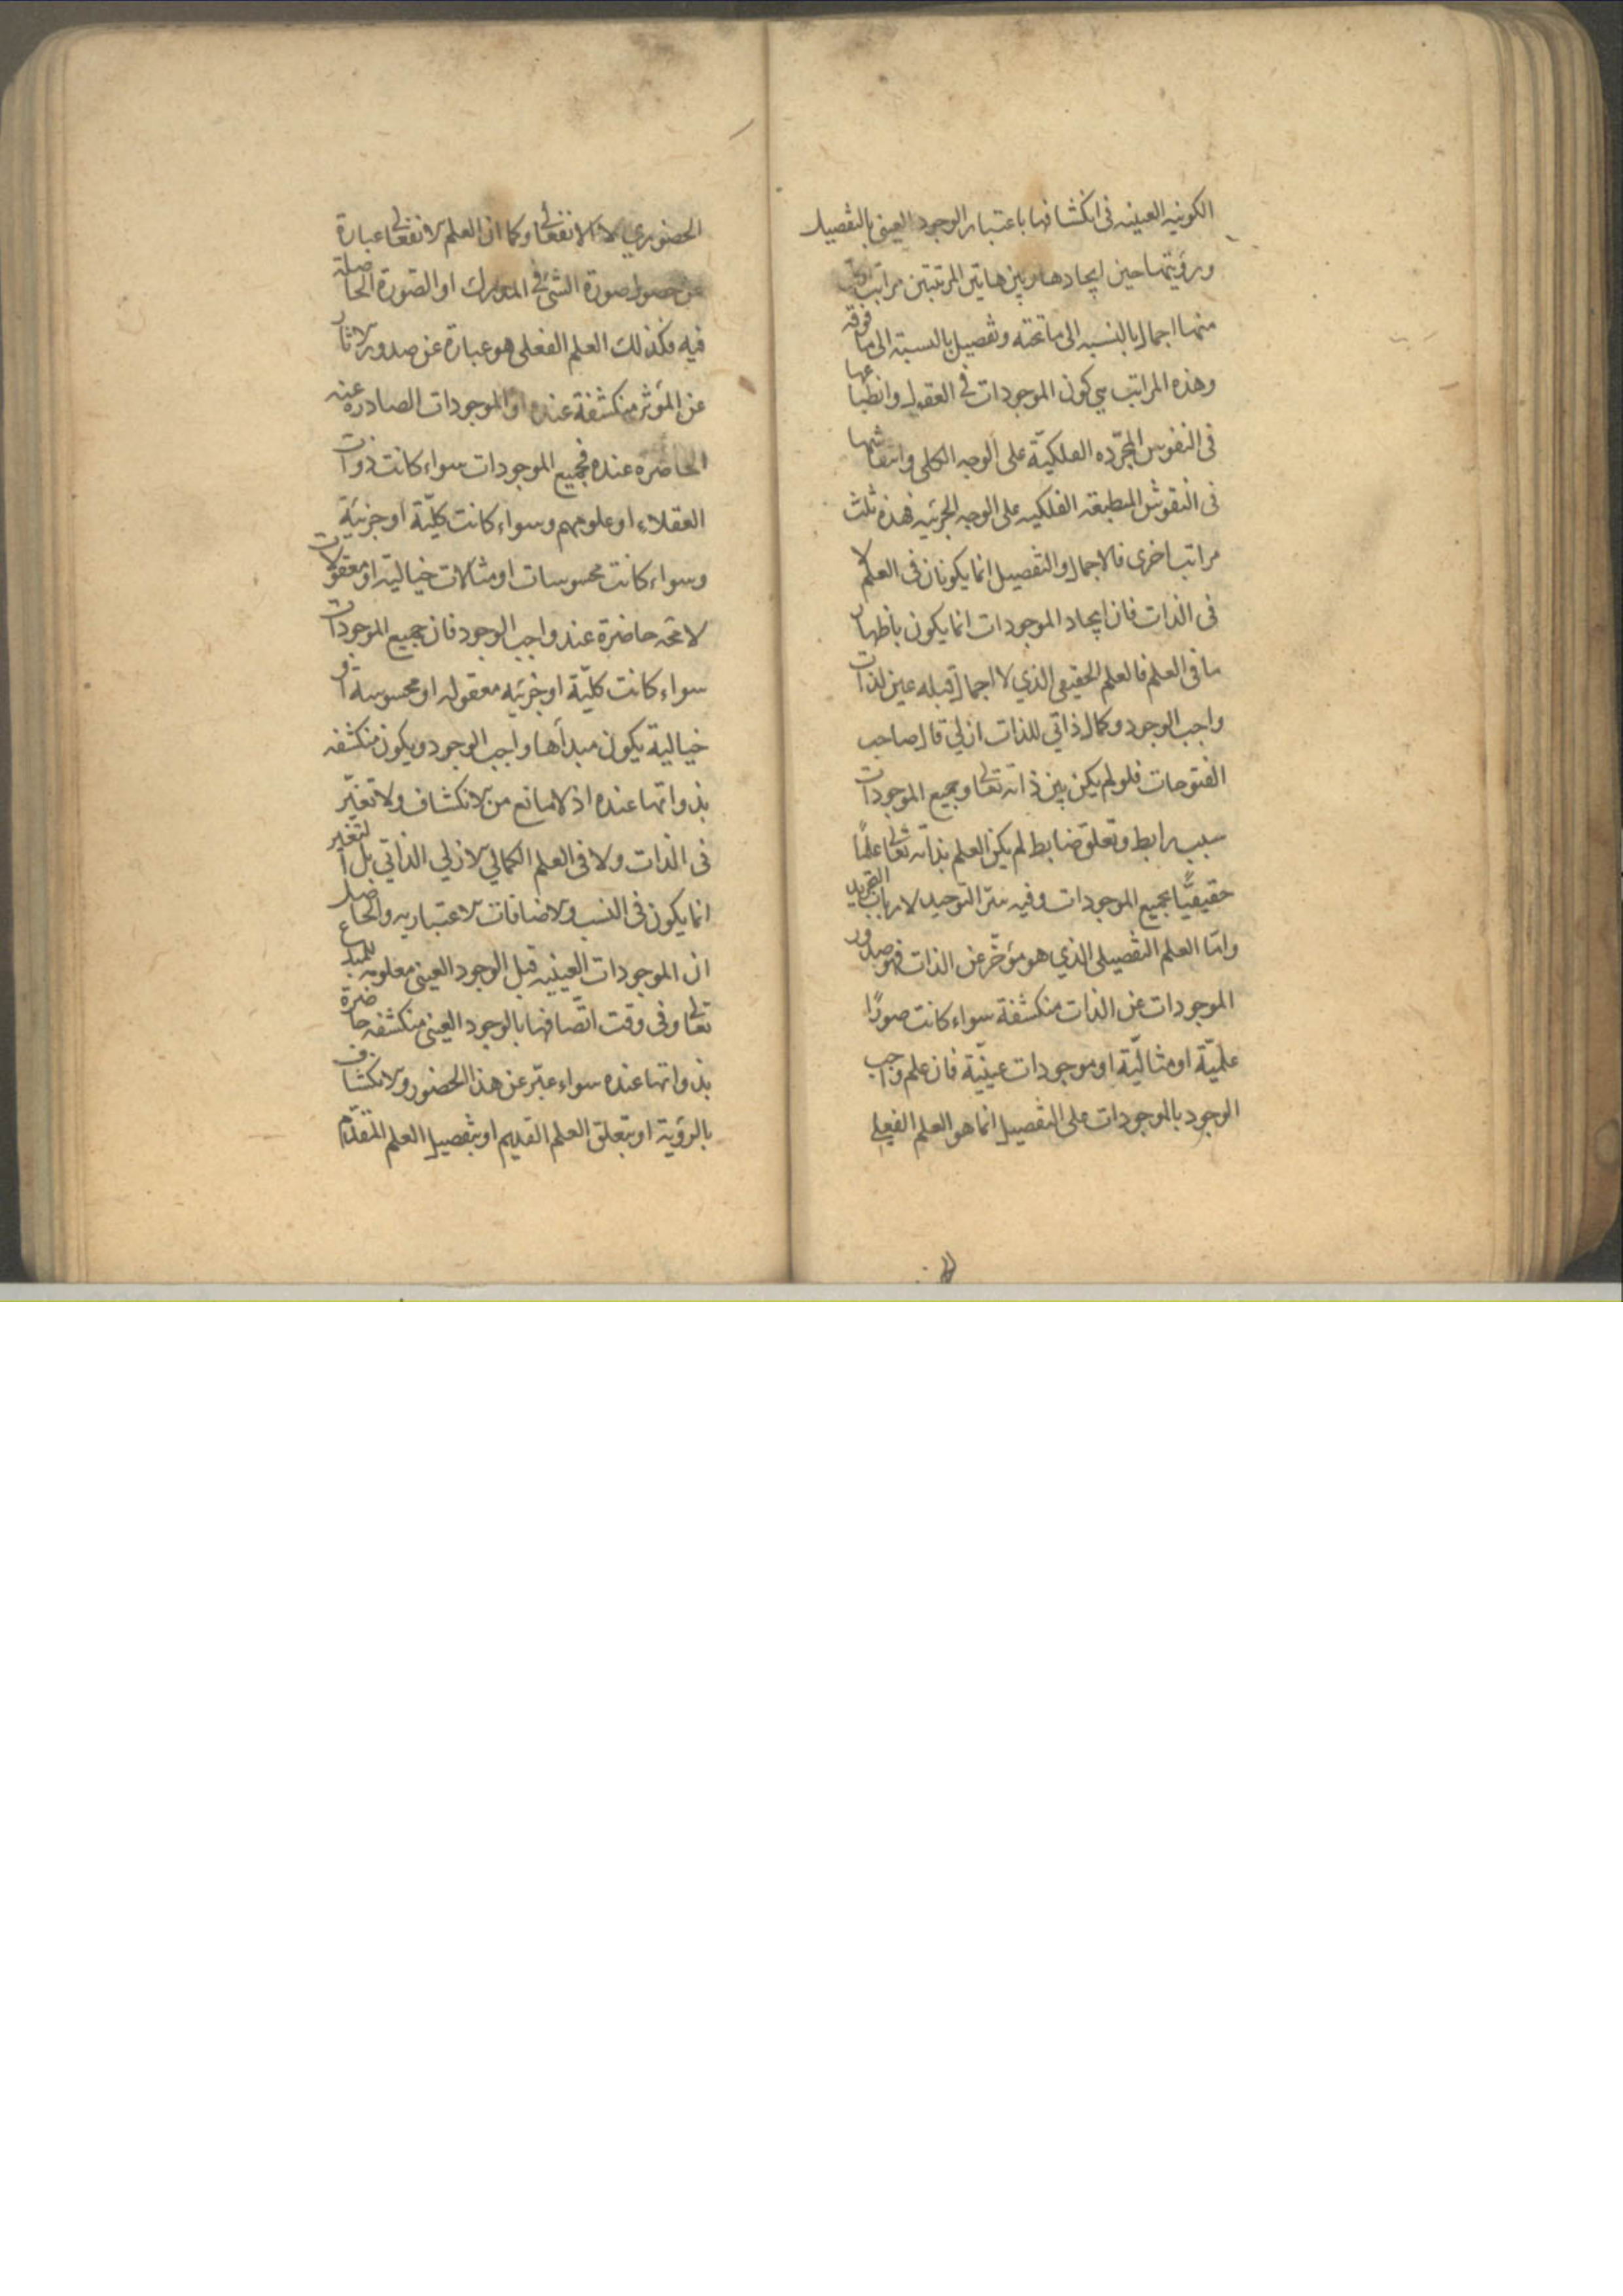 الكونيه العينيه فى انكشافها باعتبار الوجود العينى بالتفصيل
ورؤيتها حين ايجادها وبين هاتين المرتبتين مراتب كل
منها اجمال بالنسبه الى ما تحته وتفصيل بالنسبة الى ما فوقه
وهذه المراتب هي كون الموجودات فى العقول وانطباعها
فى النفوس المجرّده الفلكيّة على الوجه الكلى وانتقاشها
فى النفوش المنطبعة الفلكيه على الوجه الجزئيه فهذه ثلث
مراتب اخرى فالاجمال والتفصيل انما يكونان فى العلم لا
فى الذات فان ايجاد الموجودات انما يكون باظهار
ما فى العلم فالعلم الحقيقى الذي لا اجمال قبله عين لذات
واجب الوجود وكمال ذاتي للذات ازلي قال صاحب
الفتوحات فلو لم يكن بين ذاته تعالى وجميع الموجودات
سبب رابط وتعلق ضابط لم يكن العلم بذاته تعالى علمًا
حقيقيًّا بجميع الموجودات وفيه سرّ التوحيد لارباب التجريد
وامّا العلم التفصيلى الذي هو مؤخّر عن الذات فهو صدور
الموجودات عن الذات منكشفة سواء كانت صورًا
علميّة او مثاليّة او موجودات عينيّة فان علم واجب
الوجود بالموجودات على التفصيل انما هو العلم الفعلى
الحضوري لا الانفعالى وكما ان العلم الانفعالى عبارة
عن حصول صورة الشئ فى المدرك او الصّورة الحاصلة
فيه فكذلك العلم الفعلى هو عبارة عن صدور الاثار
عن المؤثر منكشفة عنده او الموجودات الصادره عنه
الحاضره عنده فجميع الموجودات سواء كانت ذوات
العقلاء او علومهم وسواء كانت كليّة او جزئية
وسواء كانت محسوسات او مثالات خيالية او معقولات
لائحة حاضرة عند واجب الوجود فان جميع الموجودات
سواء كانت كليّة او جزئيه معقوله او محسوسة او
خيالية يكون مبدأها واجب الوجود ويكون منكشفه
بذواتها عنده اذ لا مانع من الانكشاف ولا تغيّر
فى الذات ولا فى العلم الكمالي الازلي الذاتي بل التغير
انما يكون فى النسب والاضافات الاعتباريه والحاصل
ان الموجودات العينيه قبل الوجود العينى معلومه للمبدع
تعالى وفى وقت اتّصافها بالوجود العينى منكشفه حاضرة
بذواتها عنده سواء عبّر عن هذا الحضور والانكشاف
بالرؤية او بتعلق العلم القديم او بتفصيل العلم المتقدّم